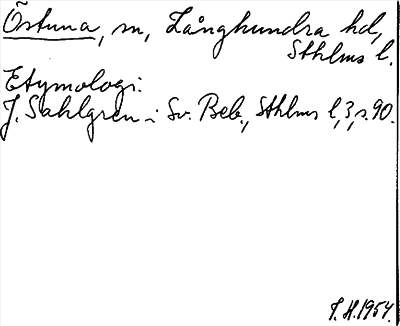 Östuna, sn, Långhundra hd,
Sthlms l.
Etymologi:
J. Sahlgren i Sv. Beb., Sthlms l, 3, s. 90.
T. H. 1954.